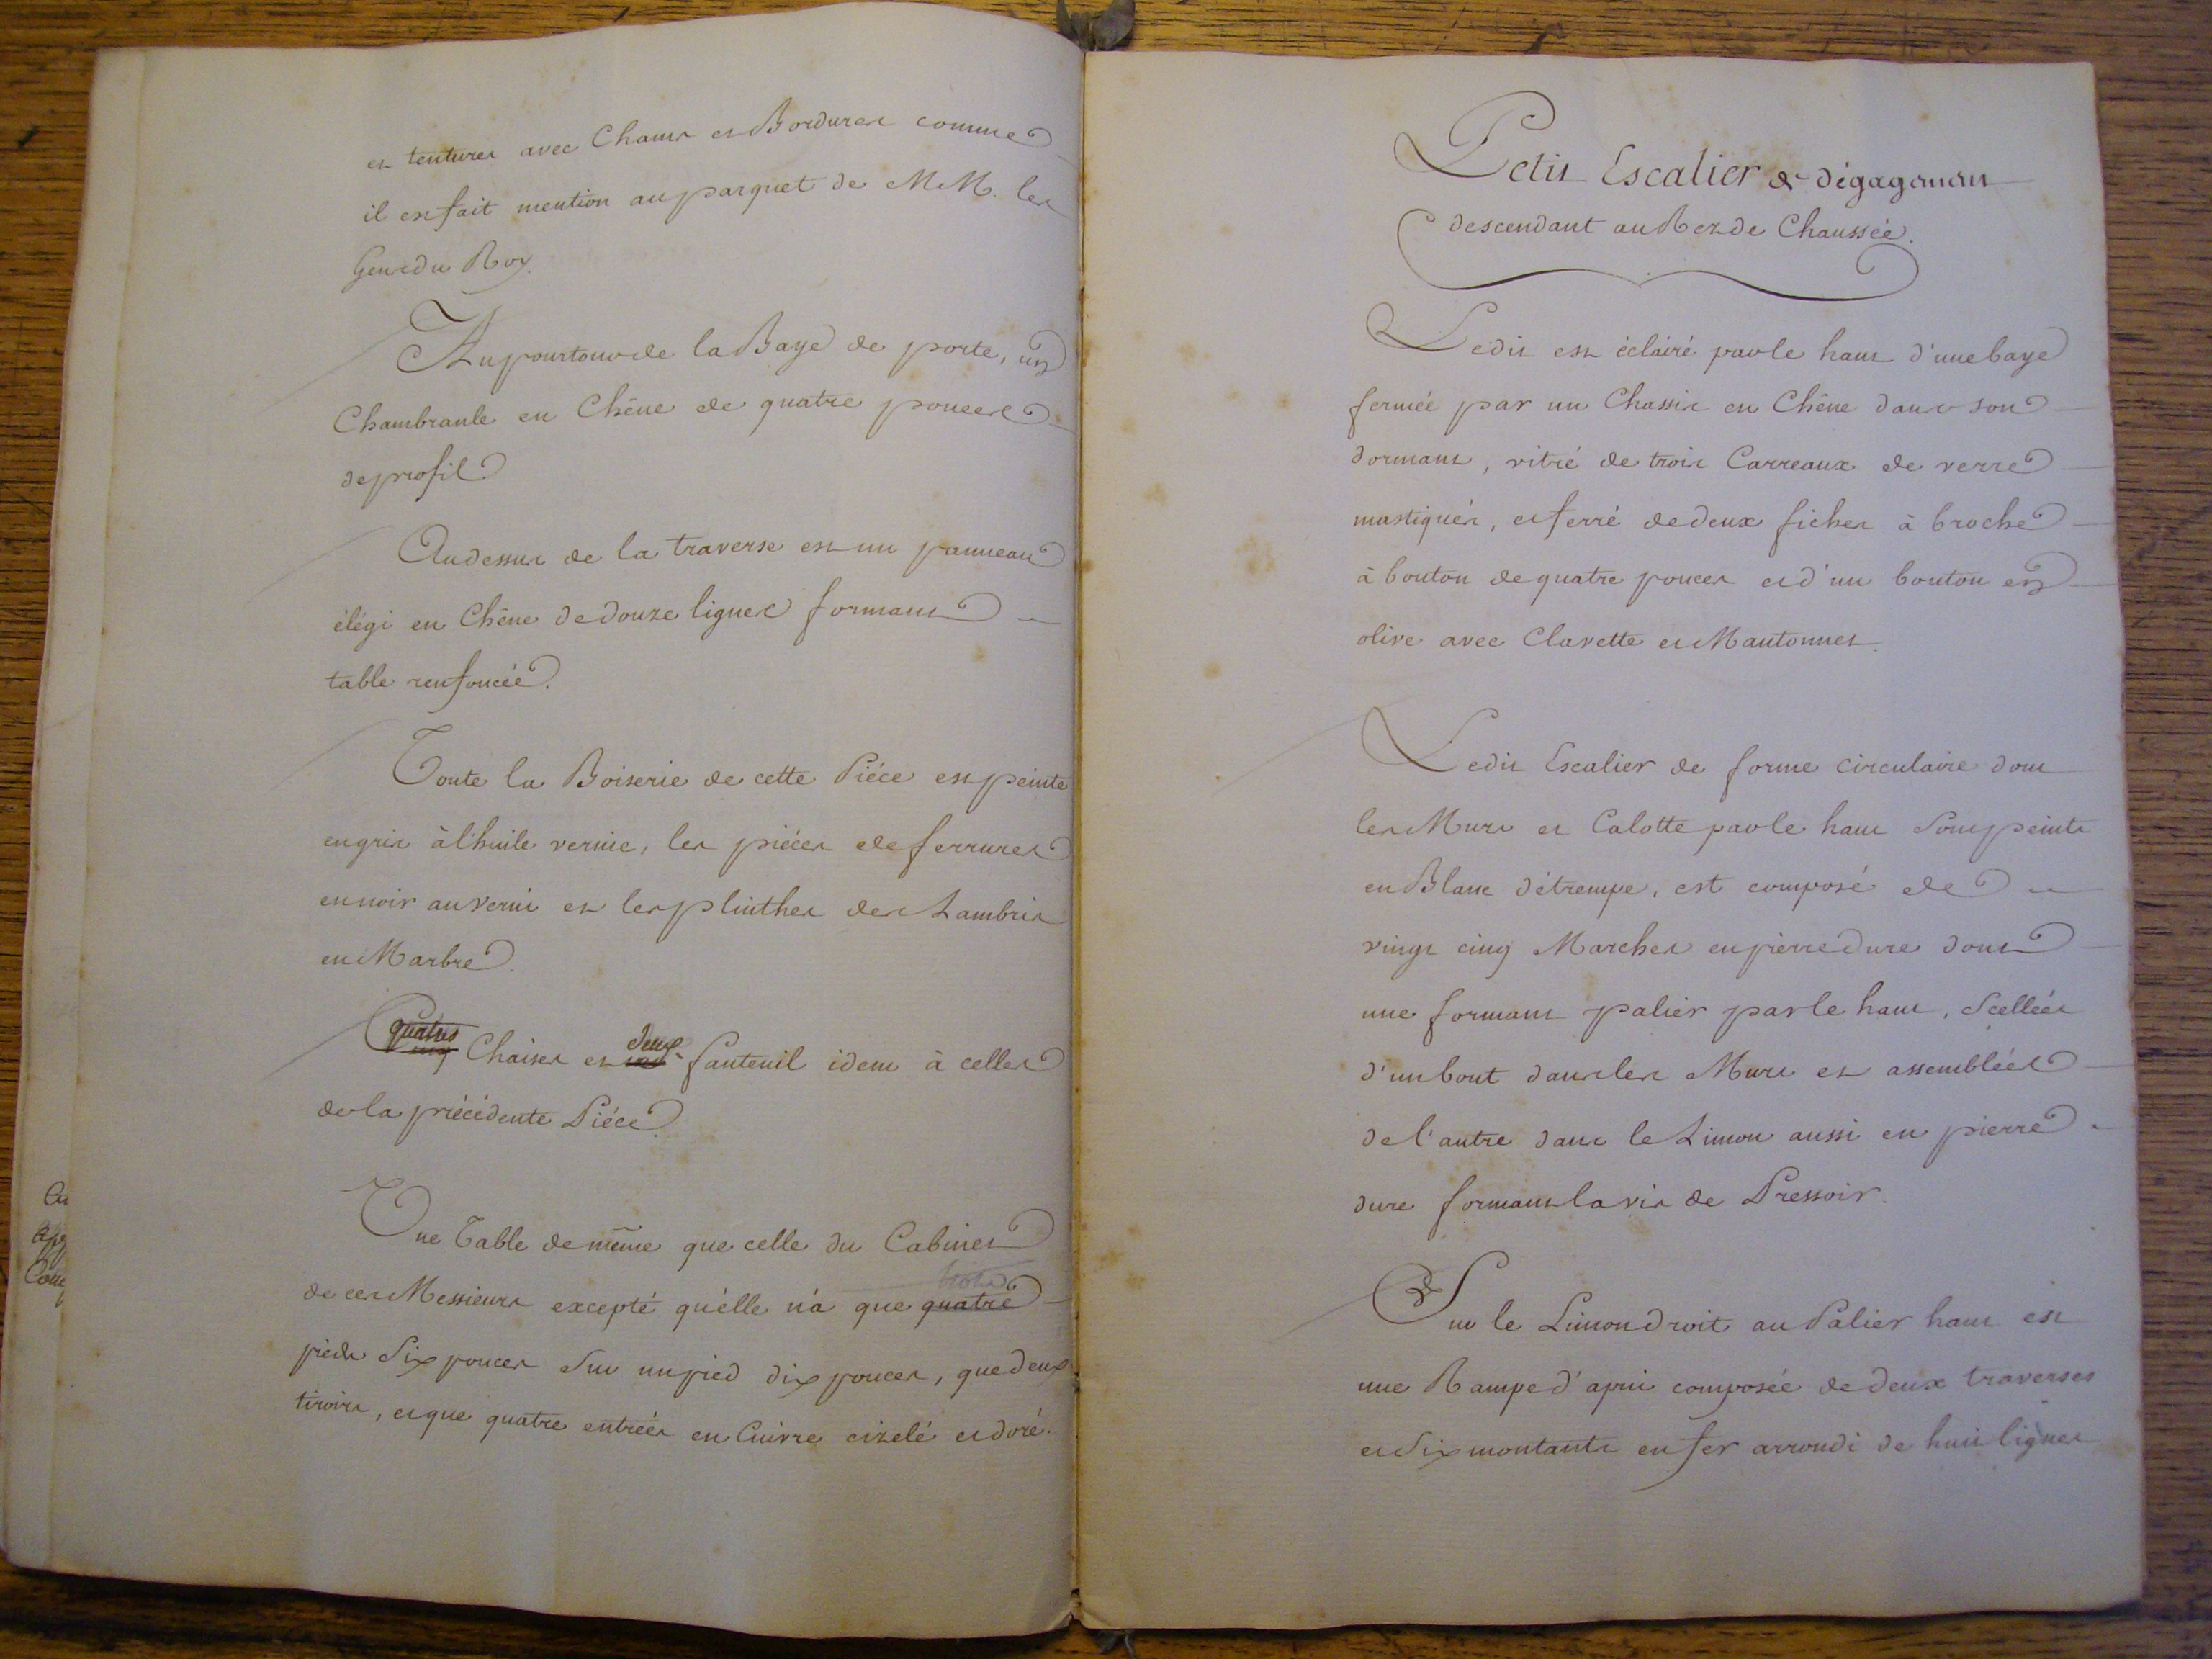 et tentures avec Champs et Bordures comme
il est fait mention au parquet de M M. les
Gens du Roy.
Au pourtour de la Baye de porte, un
Chambranle en Chêne de quatre pouces
de profil
Au dessus de la traverse est un panneau
élégi en Chêne de douze lignes formant
table renfoncée.
Toute la Boiserie de cette Piéce est peinte
en gris à l'huile vernie, les piéces de ferrures
en noir au verni et les plinthes des Lambris
en Marbre.
quatres
Chaises et deux fauteuil idem à celles
de la précédente Piéce.
Une Table de même que celle du Cabinet
trois
de ces Messieurs excepté qu'elle n'a que quatre
pieds Six pouces Sur un pied dix pouces, que deux
tiroirs, et que quatre entrées en Cuivre cizelé et doré.
Petit Escalier de dégagement
descendant au Rez de Chaussée.
Ledit est éclairé par le haut d'une baye
fermée par un Chassis en Chêne dans son
dormant, vitré de trois Carreaux de verre
mastiqués, et ferré de deux fiches à broche
à bouton de quatre pouces et d'un bouton en
olive avec Clavette et Mantonnet.
Ledit Escalier de forme circulaire dont
les Murs et Calotte par le haut Sont peints
en Blanc détrempe, est composé de
vingt cinq Marches en pierre dure dont
une formant palier par le haut, Scellées
d'un bout dans les Murs et assemblées
de l'autre dans le Limon aussi en pierre
dure formant la vis de Pressoir.
Sur le Limon droit au Palier haut est
une Rampe d'apui composée de deux traverses
et Six montants en fer arrondi de huit lignes